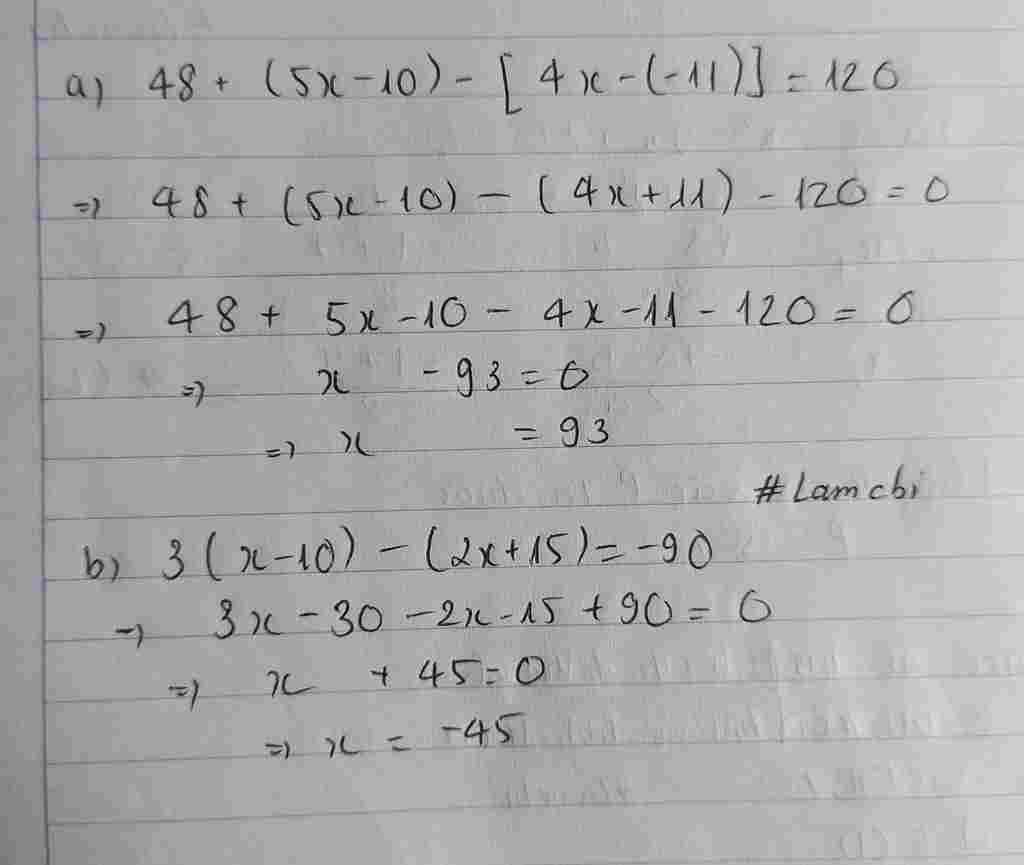 a) 48 + (5x - 10) - [4x - (-11)] = 120
=> 48 + (5x - 10) - (4x + 11) - 120 = 0
=> 48 + 5x - 10 - 4x - 11 - 120 = 0
=> x - 93 = 0
=> x = 93
#Lamchi
b) 3(x - 10) - (2x + 15) = -90
=> 3x - 30 - 2x - 15 + 90 = 0
=> x + 45 = 0
=> x = -45